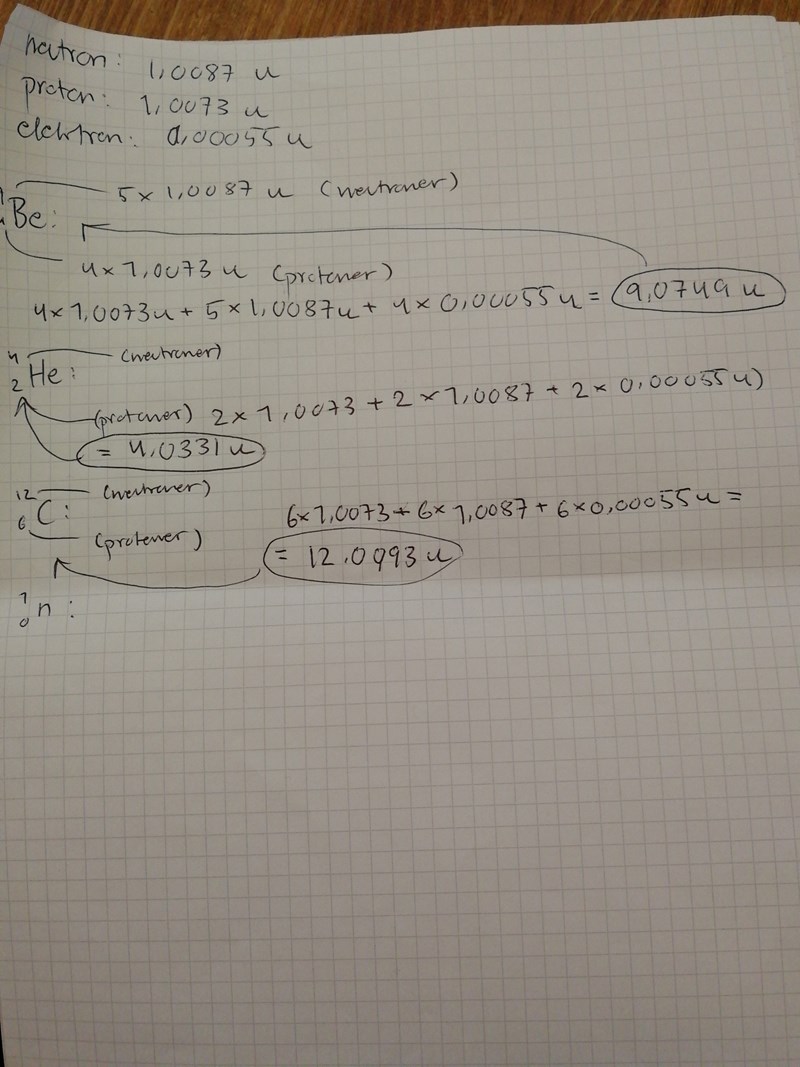 neutron: 1,0087 u
proton: 1,0073 u
elektron: 0,00055 u
5 x 1,0087 u (neutroner)
Be:
4 x 1,0073 u (protoner)
4 x 1,0073u + 5 x 1,0087u + 4 x 0,00055 u = 9,0749 u
4 (neutroner)
2 He:
(protoner) 2 x 1,0073 + 2 x 1,0087 + 2 x 0,00055 u)
= 4,0331 u
12 (neutroner)
6 C: 6 x 1,0073 + 6 x 1,0087 + 6 x 0,00055 u =
(protoner)
= 12,0993 u
1
0 n: